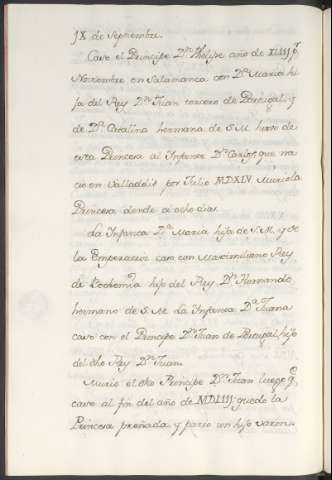 IX de Septiembre.
Caso el Principe Dn Phelipe año de XLIIII por
Noviembre en Salamanca con Da Maria hi
ja del Rey Dn Juan tercero de Portugal, y
de Da Catalina hermana de S.M. huvo de
esta Princesa al Infante Dn Carlos, que na
cio en Valladolid por Julio MDXLV. Murio la
Princesa donde a ocho dias.
La Infanta Da Maria hija de S.M. y de
la Emperatriz caso con Maximiliano Rey
de Bohemia hijo del Rey Dn Hernando
hermano de S.M. La Infanta Da Juana
caso con el Principe Dn Juan de Portugal, hijo
del dho Rey Dn Juan.
Murio el dho Principe Dn Juan luego q
caso al fin del año de MDLIII: quedo la
Princesa preñada, y pario un hijo varon.